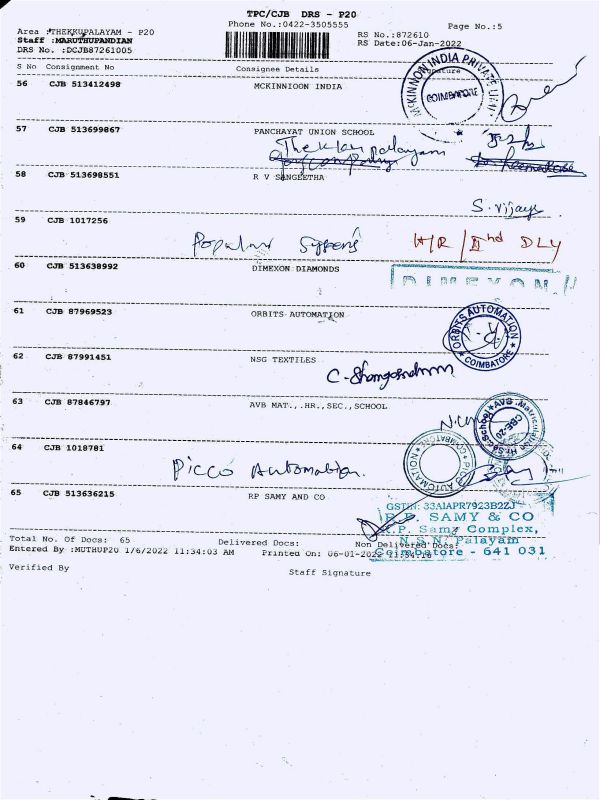 TPC/CJB DRS - P20
Phone No.:0422-3505555
Page No.:5
Area :THEKKUPALAYAM - P20
RS No.:872610
Staff :MARUTHUPANDIAN
RS Date:06-Jan-2022
DRS No. :DCJB87261005
S No Consignment No Consignee Details Signature
56 CJB 513412498 MCKINNIOON INDIA
MCKINNON INDIA PRIVATE LIMITED
COIMBATORE
57 CJB 513699867 PANCHAYAT UNION SCHOOL
Thekkupalayam
58 CJB 513698551 R V SANGEETHA
S. Vijaya
59 CJB 1017256
Popular Systems H/R / IInd DLY
60 CJB 513638992 DIMEXON DIAMONDS
DIMEXON
61 CJB 87969523 ORBITS AUTOMATION
ORBITS AUTOMATION
COIMBATORE
62 CJB 87991451 NSG TEXTILES
63 CJB 87846797 AVB MAT.,.HR.,SEC.,SCHOOL
AVB Matriculation Hr.Sec.School
CBE-20
64 CJB 1018781
Picco Automation.
65 CJB 513636215 RP SAMY AND CO
GSTIN: 33AIAPR7923B2ZJ
R.P. SAMY & CO
R.P. Samy Complex,
N.S.N. Palayam
Coimbatore - 641 031
Total No. Of Docs: 65 Delivered Docs: Non Delivered Docs:
Entered By :MUTHUP20 1/6/2022 11:34:03 AM Printed On: 06-01-2022 11:34:18
Verified By
Staff Signature